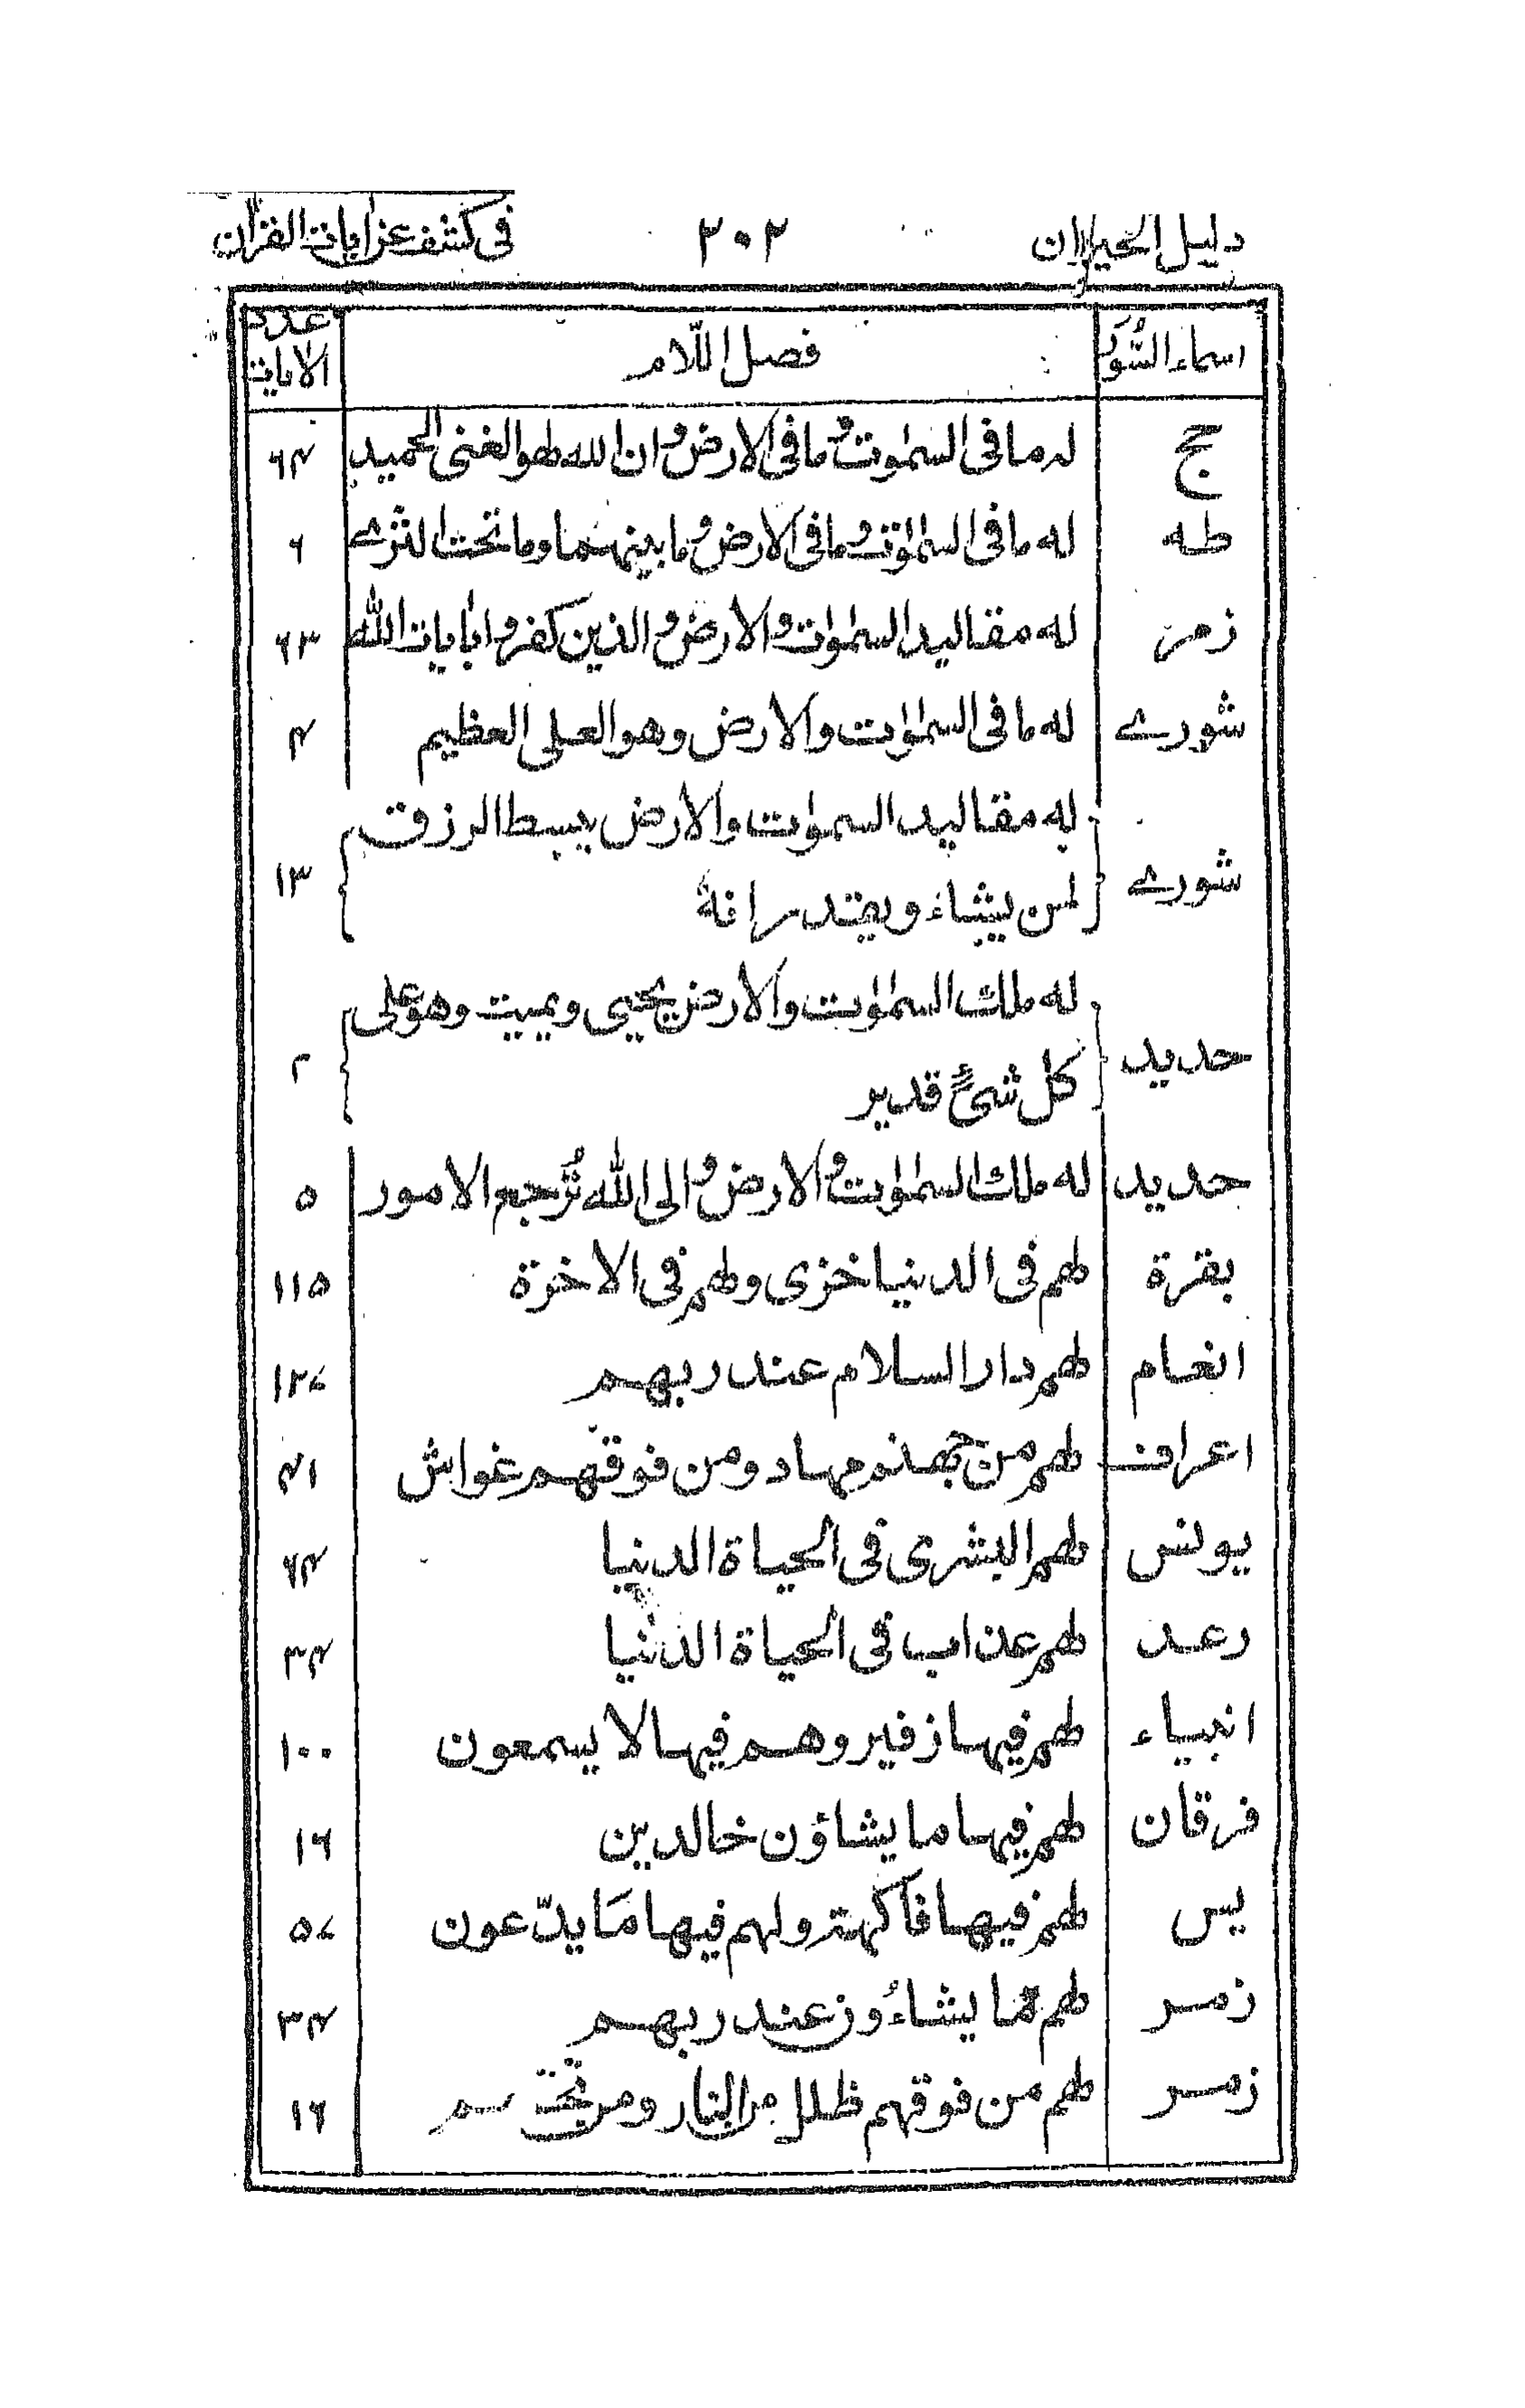 دليل الحيران ٢٠٢ فى كشف عن ايات القران
اسماء السُّوَر فصل اللّام عدد الايات
حج له ما فى السمٰوت و ما فى الارض و ان الله لهو الغنى الحميد ٦٤
طه له ما فى السمٰوٰت و ما فى الارض و ما بينهما وما تحت الثرے ٦
زمر له مقاليد السمٰوات و الارض و الذين كفروا بايات الله ٦٣
شورے له ما فى السمٰوٰت والارض وهو العلى العظيم ٤
شورے له مقاليد السموٰت والارض يبسط الرزق
لمن يشاء ويقتدر انهٗ ١٣
حديد له ملك السمٰوٰت والارض يحيى ويميت وهو على
كل شىءٍ قدير ٢
حديد له ملك السمٰوٰت و الارض و الى الله تُرجع الامور ٥
بقرة لهم فى الدنيا خزى ولهم فى الاخرة ١١٥
انعام لهم دار السلام عند ربهم ١٢٧
اعراف لهم من جهنم مهاد ومن فوقهم غواش ٤١
يونس لهم البشرى فى الحياة الدنيا ٦٤
رعد لهم عذاب فى الحياة الدنيا ٣٤
انبياء لهم فيها زفير وهم فيها لا يسمعون ١٠٠
فرقان لهم فيها ما يشاؤن خالدين ١٦
يس لهم فيها فاكهة ولهم فيها مَا يدّعون ٥٧
زمر لهم ما يشاءُون عند ربهم ٣٤
زمر لهم من فوقهم ظلل من النار ومن تحتهم ١٦